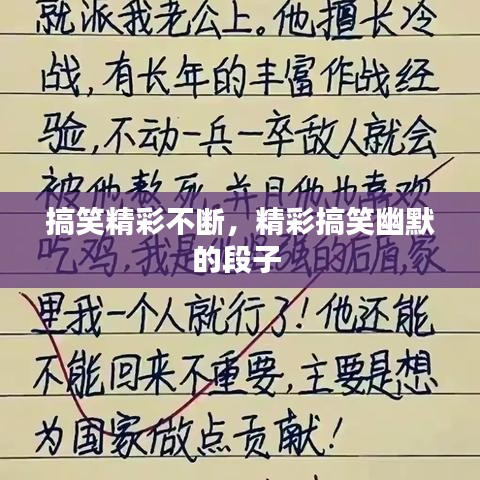 就派我老公上。他擅长冷
战,有长年的丰富作战经
验,不动一兵一卒敌人就会
被他熬死,并且他也喜欢
搞笑精彩不断，精彩搞笑幽默
的段子
吃鸡,我是 强的后盾,家
里我一个人就行了!他还能
不能回来不重要,主要是想
为国家做点贡献!